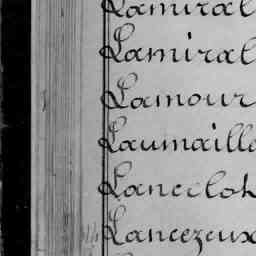 Lamiral
Lamiral
Lamour
Laumaille
Lancelot
Lancezeux